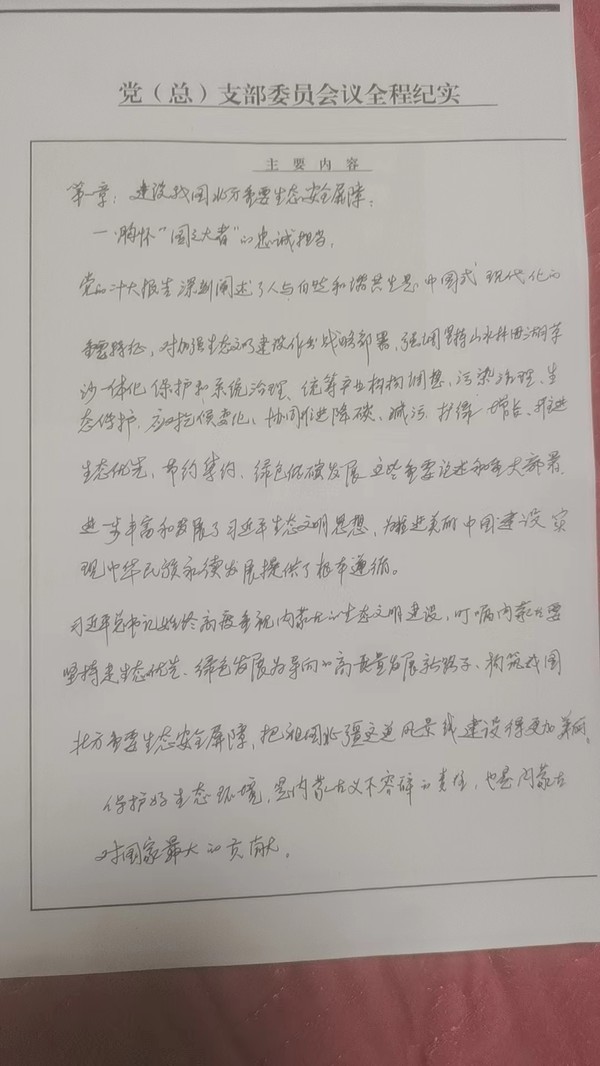 党（总）支部委员会议全程纪实
主要内容
第一章：建设我国北方重要生态安全屏障；
一、胸怀“国之大者”的忠诚担当，
党的二十大报告深刻阐述了人与自然和谐共生是中国式现代化的
重要特征，对加强生态文明建设作出战略部署，强调坚持山水林田湖草
沙一体化保护和系统治理、统筹产业结构调整、污染治理、生
态保护、应对气候变化、协同推进降碳、减污、扩绿、增长、推进
生态优先、节约集约、绿色低碳发展这些重要论述和重大部署，
进一步丰富和发展了习近平生态文明思想，为推进美丽中国建设实
现中华民族永续发展提供了根本遵循。
习近平总书记始终高度重视内蒙古的生态文明建设，叮嘱内蒙古要
坚持走生态优先、绿色发展为导向的高质量发展新路子、构筑我国
北方重要生态安全屏障，把祖国北疆这道风景线建设得更加美丽。
保护好生态环境，是内蒙古义不容辞的责任，也是内蒙古
对国家最大的贡献。